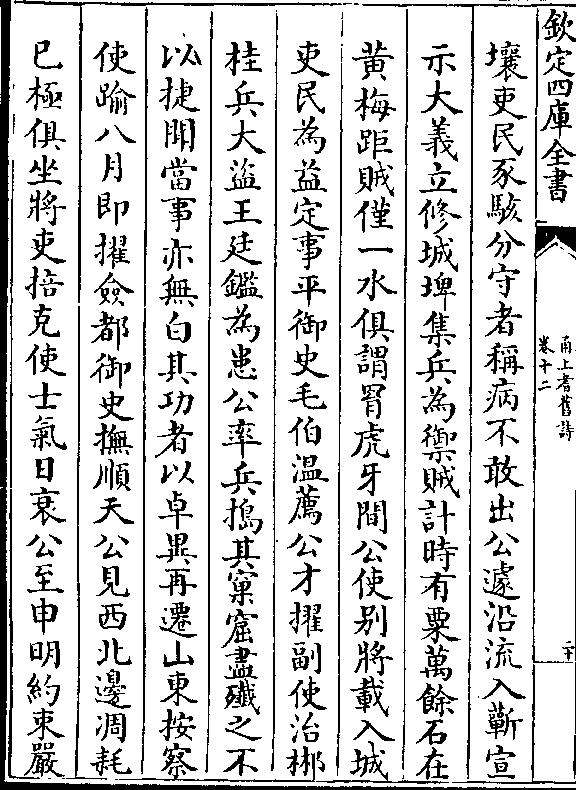 欽定四庫全書
甬上耆舊詩
卷十二
二十
壤吏民豕駭分守者稱病不敢出公遽沿流入蘄宣
示大義立修城埤集兵為禦賊計時有粟萬餘石在
黄梅距賊僅一水俱謂胥虎牙間公使别將載入城
吏民為益定事平御史毛伯溫薦公才擢副使治郴
桂兵大盜王廷鑑為患公率兵搗其窠窟盡殲之不
以捷聞當事亦無白其功者以卓異再遷山東按察
使踰八月即擢僉都御史撫順天公見西北邊凋耗
已極俱坐將吏掊克使士氣日衰公至申明約束嚴